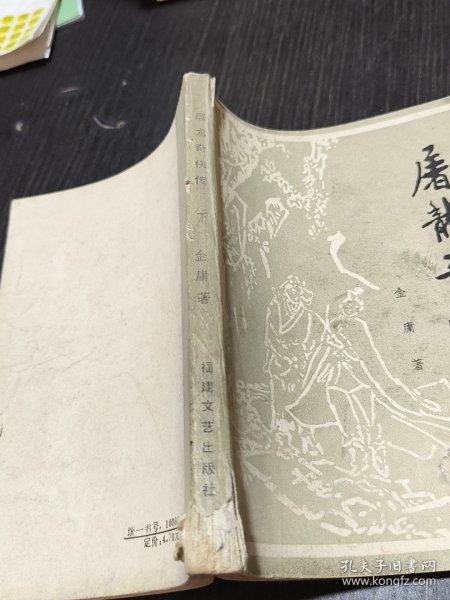 屠龙奇侠传 下 金庸著 福建文艺出版社
屠龙
金庸 著
统一书号:1000
定价:4.70元
孔夫子旧书网
www.kongfz.com